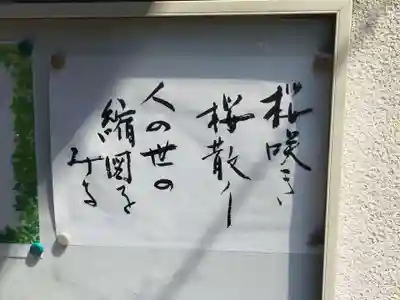 桜咲き
桜散り
人の世の
縮図を
みる